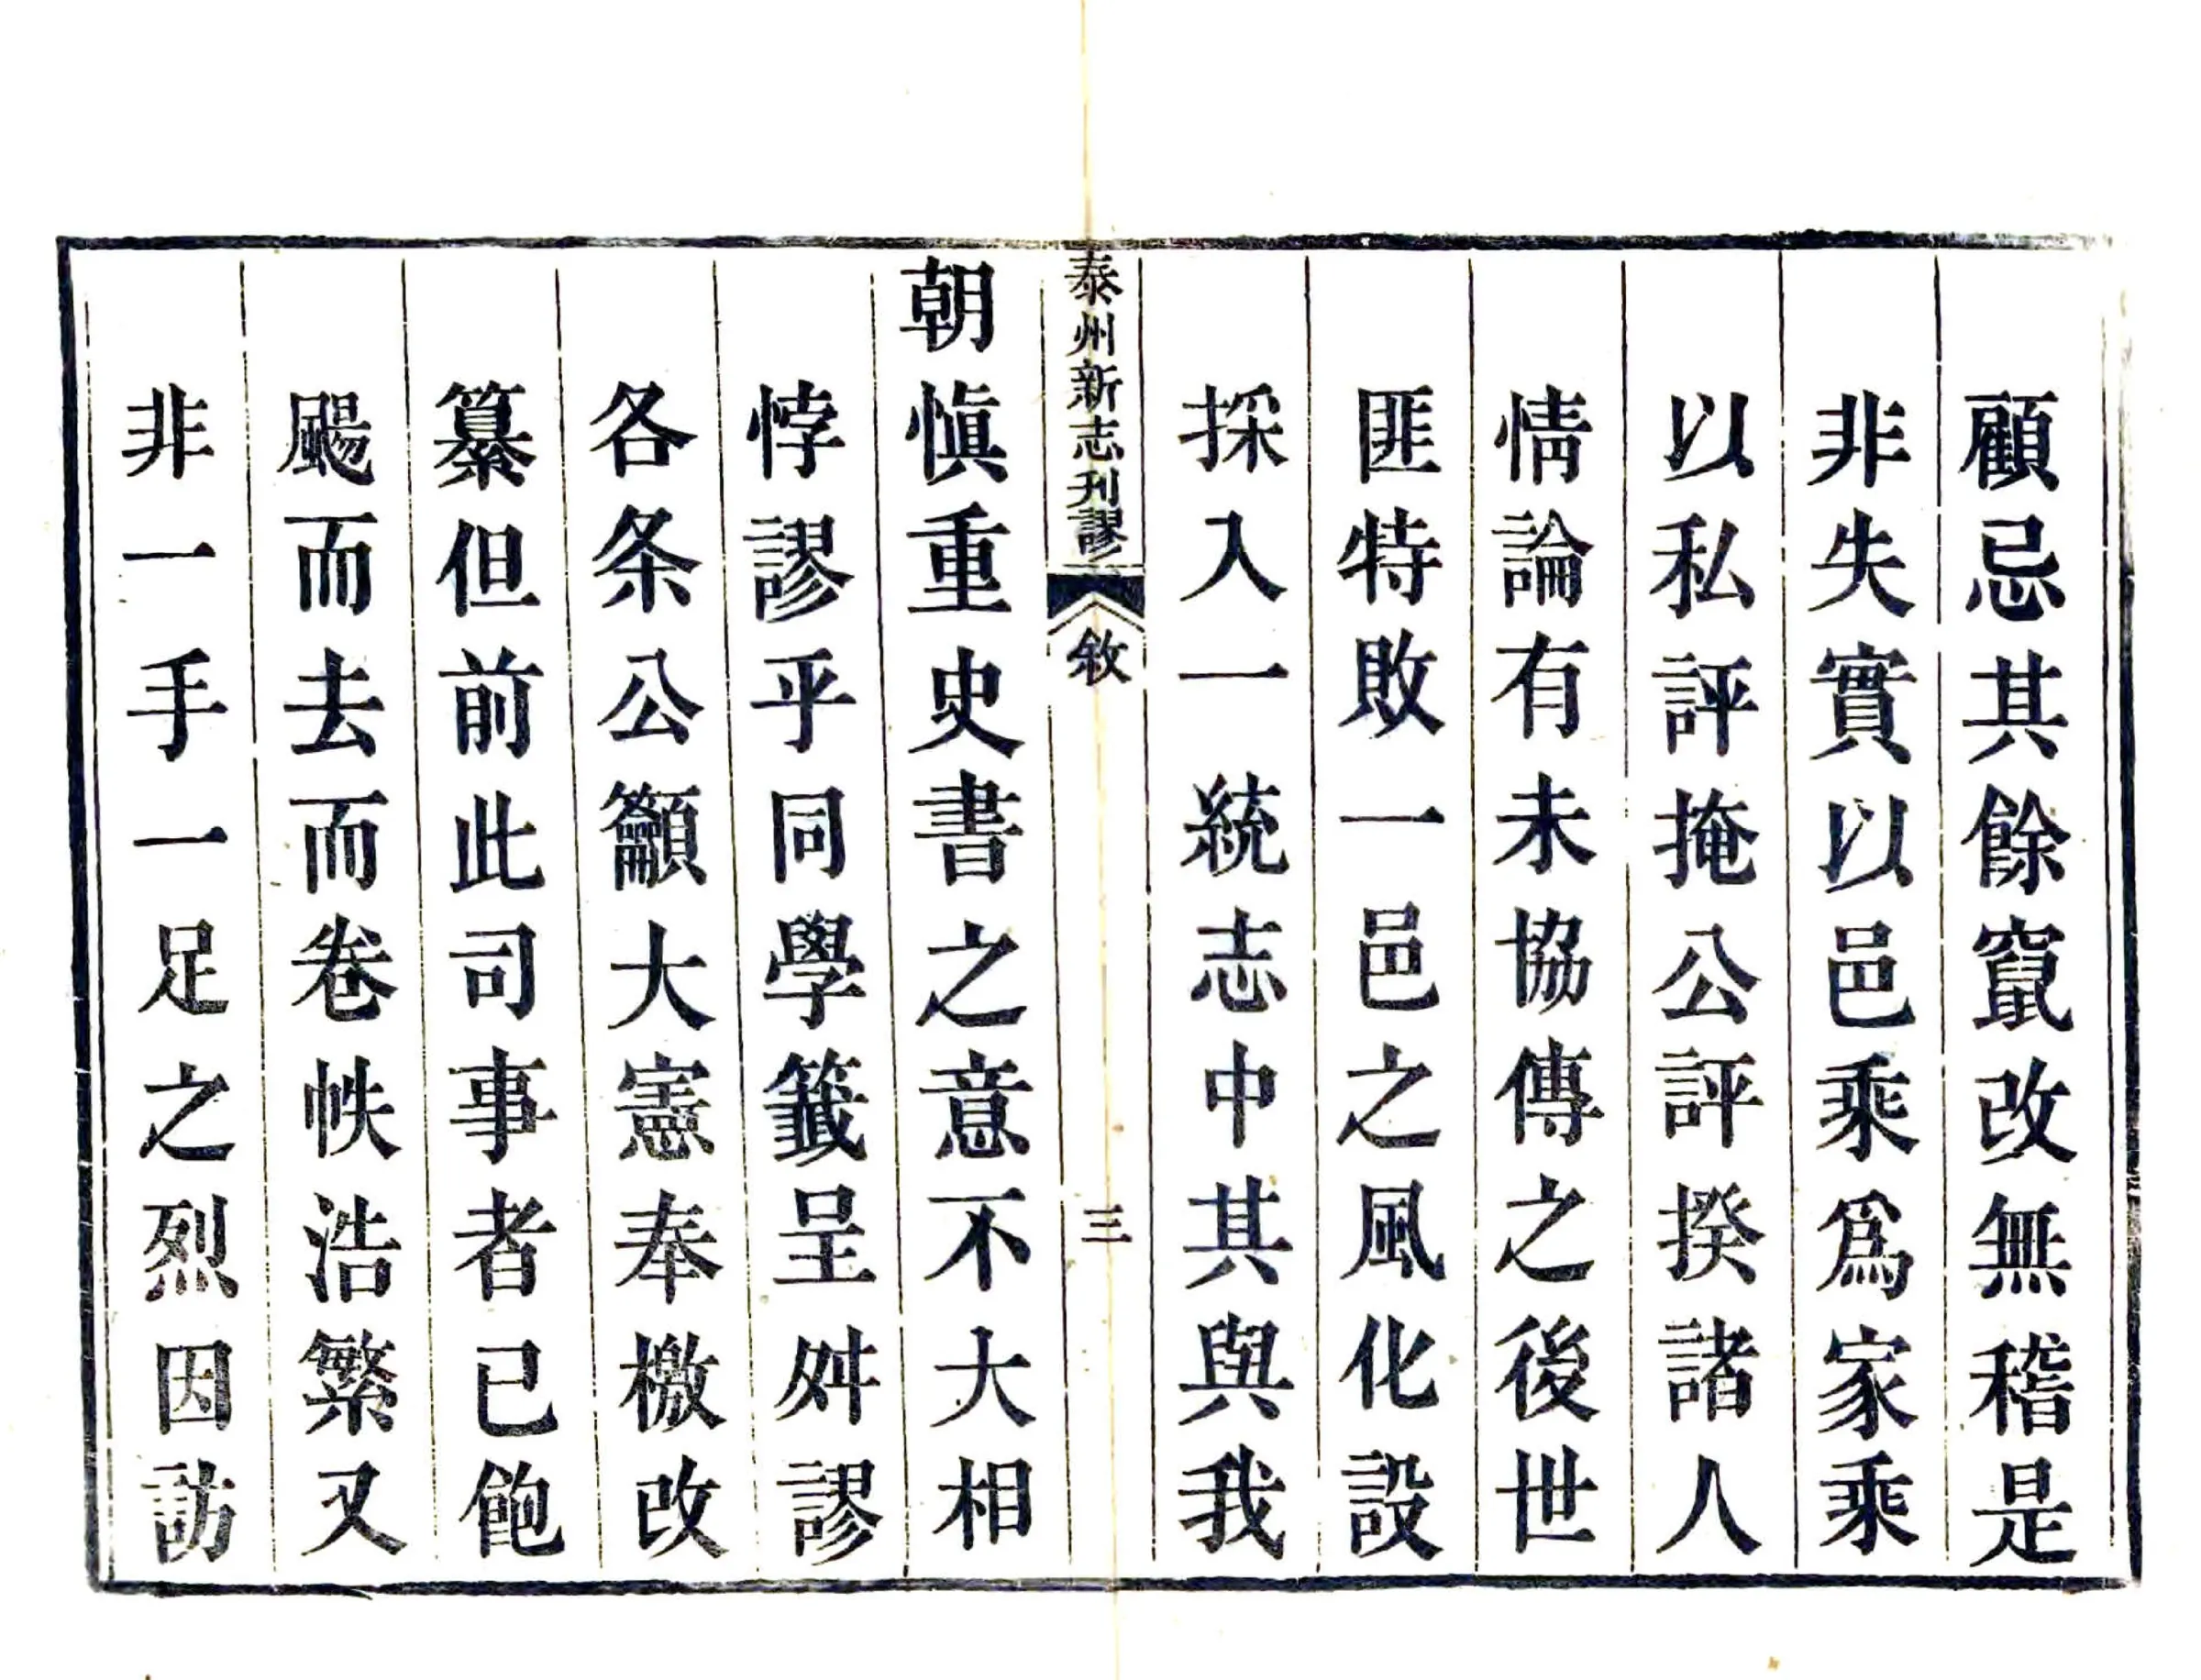 顧忌其餘竄改無稽是
非失實以邑乘爲家乘
以私評掩公評揆諸人
情論有未協傳之後世
匪特敗一邑之風化設
採入一統志中其與我
泰州新志刊謬 敘 三
朝愼重史書之意不大相
悖謬乎同學籤呈舛謬
各条公籲大憲奉檄改
纂但前此司事者已飽
颺而去而卷帙浩繁又
非一手一足之烈因訪